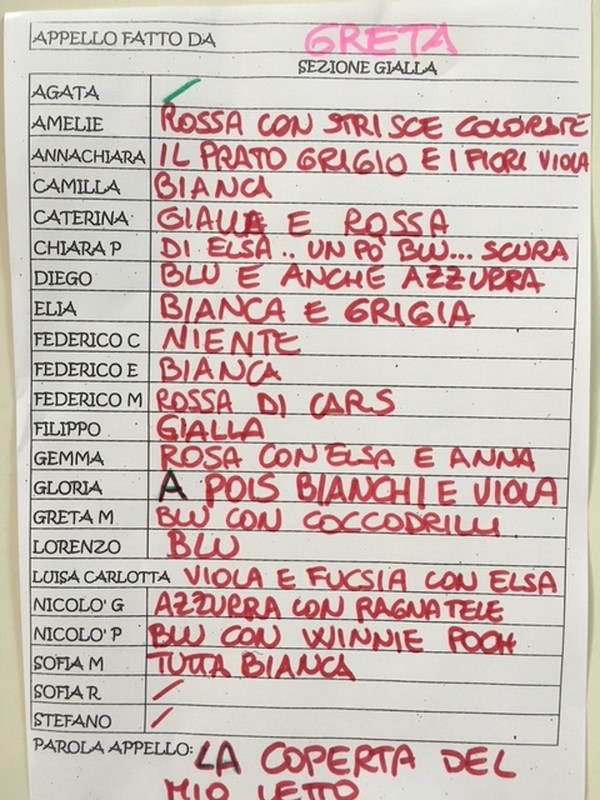 APPELLO FATTO DA GRETA
SEZIONE GIALLA
AGATA /
AMELIE ROSSA CON STRISCE COLORATE
ANNACHIARA IL PRATO GRIGIO E I FIORI VIOLA
CAMILLA BIANCA
CATERINA GIALLA E ROSSA
CHIARA P DI ELSA .. UN PÒ BLU... SCURA
DIEGO BLU E ANCHE AZZURRA
ELIA BIANCA E GRIGIA
FEDERICO C NIENTE
FEDERICO E BIANCA
FEDERICO M ROSSA DI CARS
FILIPPO GIALLA
GEMMA ROSA CON ELSA E ANNA
GLORIA A POIS BIANCHI E VIOLA
GRETA M BLU CON COCCODRILLI
LORENZO BLU
LUISA CARLOTTA VIOLA E FUCSIA CON ELSA
NICOLO' G AZZURRA CON RAGNATELE
NICOLO' P BLU CON WINNIE POOH
SOFIA M TUTTA BIANCA
SOFIA R /
STEFANO /
PAROLA APPELLO: LA COPERTA DEL
MIO LETTO